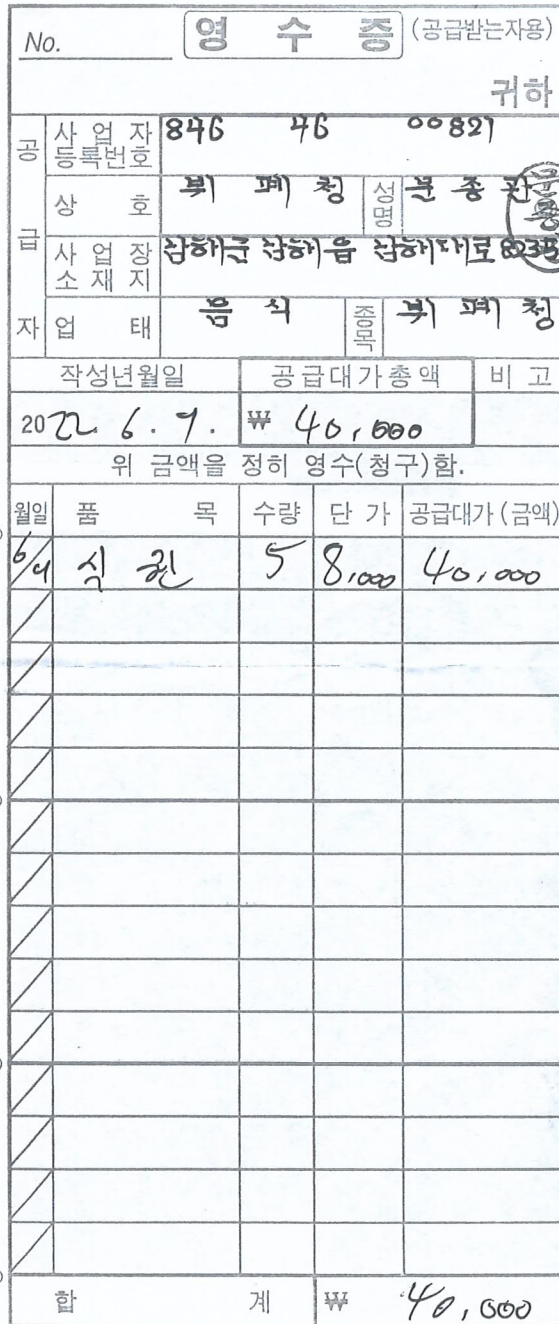 No. 영 수 증 (공급받는자용)
귀하
공급자
사업자등록번호 846 46 00827
상호 뷔페청 성명 문종
사업장소재지
업태 음식 종목 뷔페청
작성년월일 공급대가총액 비고
2022. 6. 9. ₩ 40,000
위 금액을 정히 영수(청구)함.
월일 품목 수량 단가 공급대가(금액)
6/9 식권 5 8,000 40,000
합계 ₩ 40,000